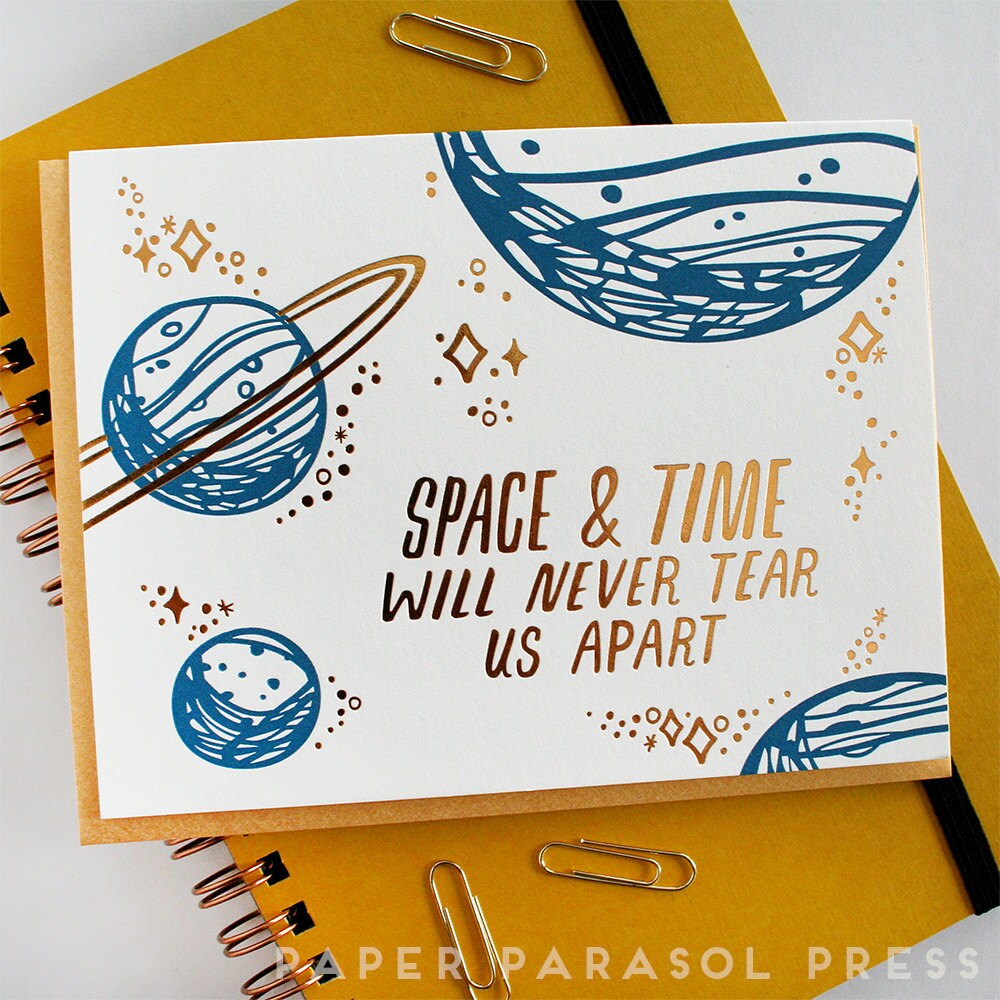 SPACE & TIME
WILL NEVER TEAR
US APART
PAPER PARASOL PRESS